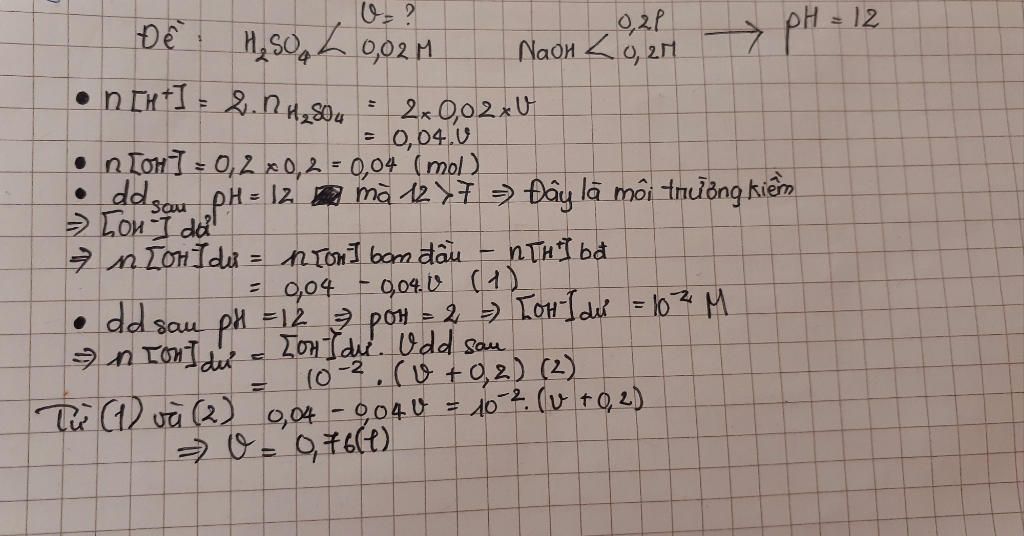 V = ?
0,2l
Đề: H₂SO₄ < 0,02 M NaOH < 0,2M → pH = 12
• n[H⁺] = 2.nH₂SO₄ = 2x0,02xV
= 0,04.V
• n[OH⁻] = 0,2 x0,2 = 0,04 (mol)
• dd sau pH = 12 mà 12>7 ⇒ Đây là môi trường kiềm
⇒ [OH⁻] dư
⇒ n[OH⁻]dư = n[OH⁻] ban đầu - n[H⁺] bđ
= 0,04 - 0,04V (1)
• dd sau pH =12 ⇒ pOH = 2 ⇒ [OH⁻]dư = 10⁻² M
⇒ n[OH⁻]dư = [OH⁻]dư. Vdd sau
= 10⁻² . (V + 0,2) (2)
Từ (1) và (2) 0,04 - 0,04V = 10⁻². (V + 0,2)
⇒ V = 0,76(l)